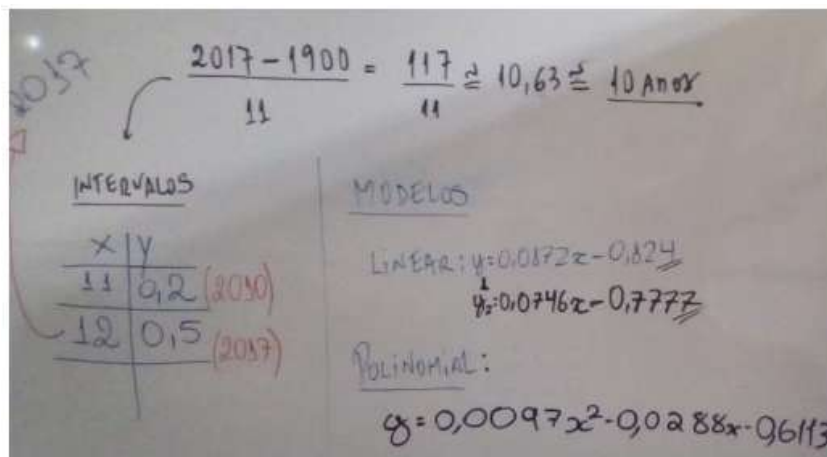 2017
2017 - 1900 = 117 ≅ 10,63 ≅ 10 Anos
11 11
INTERVALOS
x | y
11 | 0,2 (2010)
12 | 0,5 (2017)
MODELOS
LINEAR: y=0,0872x-0,824
y=0,0746x-0,7777
POLINOMIAL:
y=0,0097x²-0,0288x-0,6113